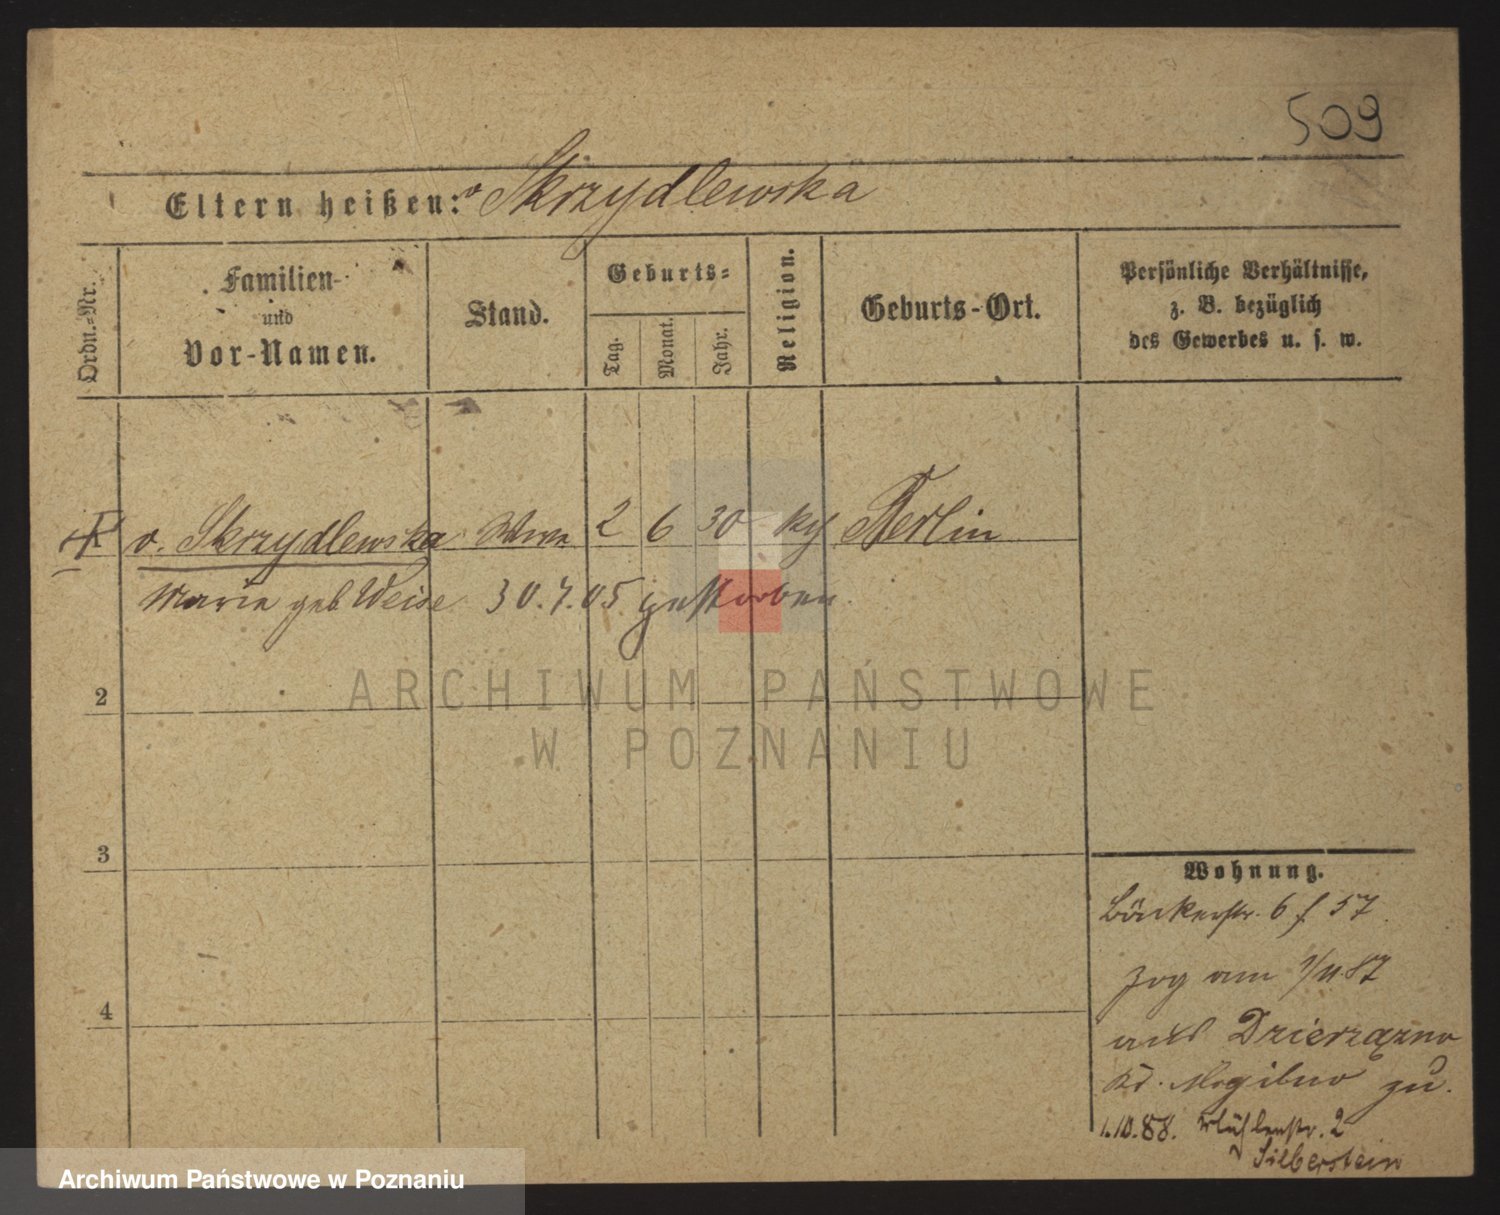 509
Eltern heißen: v Skrzydlewska
Ordn.-Nr.
Familien-
und
Vor-Namen.
Stand.
Geburts-
Tag.
Monat.
Jahr.
Religion.
Geburts-Ort.
Persönliche Verhältnisse,
z. B. bezüglich
des Gewerbes u. s. w.
v. Skrzydlewska Wwe 2 6 30 kth Berlin
Marie geb Weise 30.7.05 gestorben.
ARCHIWUM PAŃSTWOWE
W POZNANIU
2
3
4
Wohnung.
Bäckerstr. 6 f 57.
zog am 1/11.87
aus Dzierzązno
Kr. Mogilno zu.
1.10.88. Mühlenstr. 2
Silberstein
Archiwum Państwowe w Poznaniu